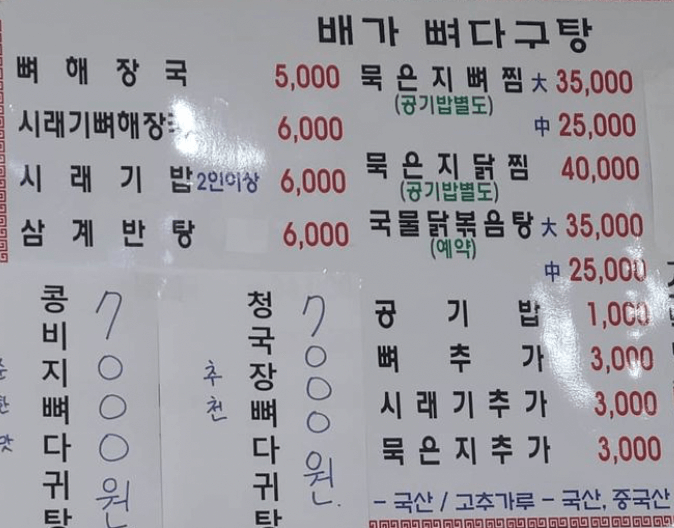 배가 뼈다구탕
뼈해장국 5,000
시래기뼈해장국 6,000
시래기밥 2인이상 6,000
삼계반탕 6,000
묵은지뼈찜 大 35,000
(공기밥별도)
中 25,000
묵은지닭찜 40,000
(공기밥별도)
국물닭볶음탕 大 35,000
(예약)
中 25,000
공기밥 1,000
뼈추가 3,000
시래기추가 3,000
묵은지추가 3,000
- 국산 / 고추가루 - 국산, 중국산
콩비지뼈다귀탕
7000원
추천
청국장뼈다귀탕
7000원.